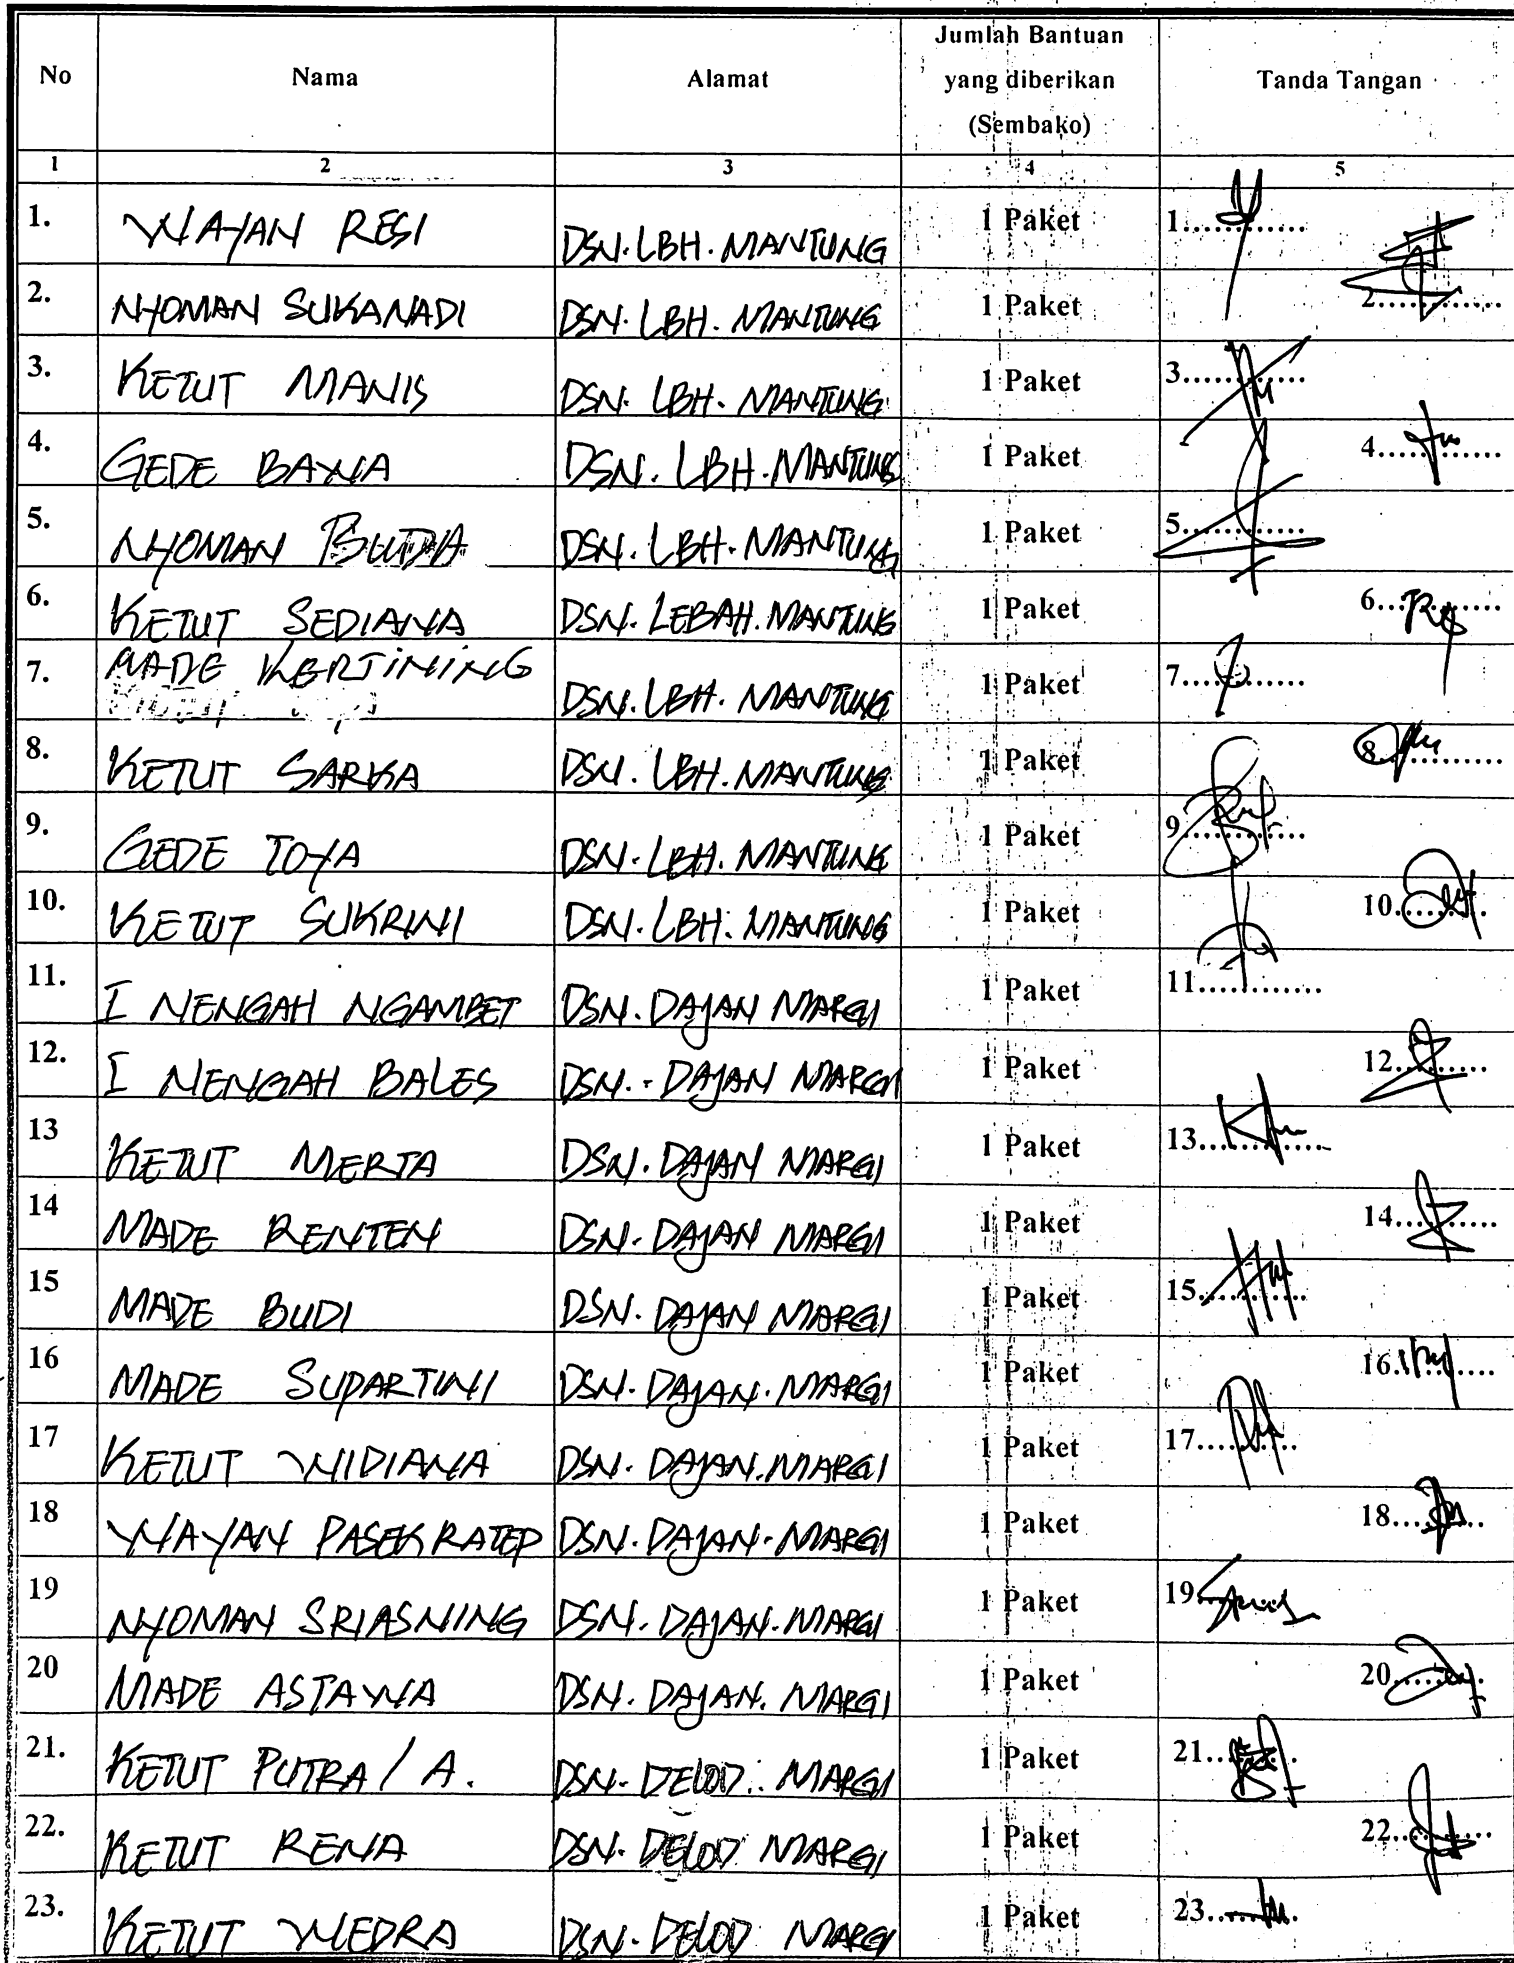 No Nama Alamat Jumlah Bantuan yang diberikan (Sembako) Tanda Tangan
1 2 3 4 5
1. WAYAN RESI DSN. LBH. MANTUNG 1 Paket 1............
2. NYOMAN SUKANADI DSN. LBH. MANTUNG 1 Paket 2............
3. KETUT MANIS DSN. LBH. MANTUNG 1 Paket 3............
4. GEDE BAWA DSN. LBH. MANTUNG 1 Paket 4............
5. NYOMAN BUDIA DSN. LBH. MANTUNG 1 Paket 5............
6. KETUT SEDIANA DSN. LEBAH. MANTUNG 1 Paket 6............
7. MADE KERTINING DSN. LBH. MANTUNG 1 Paket 7............
8. KETUT SARKA DSN. LBH. MANTUNG 1 Paket 8............
9. GEDE TOYA DSN. LBH. MANTUNG 1 Paket 9............
10. KETUT SUKRINI DSN. LBH. MANTUNG 1 Paket 10............
11. I NENGAH NGAMBET DSN. DAJAN MARGI 1 Paket 11............
12. I NENGAH BALES DSN. - DAJAN MARGI 1 Paket 12............
13 KETUT MERTA DSN. DAJAN MARGI 1 Paket 13............
14 MADE RENTEN DSN. DAJAN MARGI 1 Paket 14............
15 MADE BUDI DSN. DAJAN MARGI 1 Paket 15............
16 MADE SUPARTINI DSN. DAJAN. MARGI 1 Paket 16............
17 KETUT WIDIANA DSN. DAJAN. MARGI 1 Paket 17............
18 WAYAN PASEK RATEP DSN. DAJAN. MARGI 1 Paket 18............
19 NYOMAN SRIASNING DSN. DAJAN. MARGI 1 Paket 19............
20 MADE ASTAWA DSN. DAJAN. MARGI 1 Paket 20............
21. KETUT PUTRA / A. DSN. DELOD. MARGI 1 Paket 21............
22. KETUT RENA DSN. DELOD MARGI 1 Paket 22............
23. KETUT WEDRA DSN. DELOD MARGI 1 Paket 23............